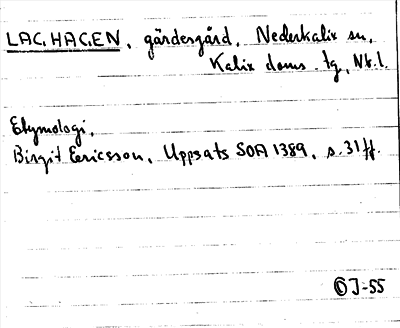 LAGHAGEN, gärdesgård, Nederkalix sn,
Kalix doms. tg, Nb.l.
Etymologi,
Birgit Eericsson, Uppsats SOA 1389, s. 31 ff.
J-55